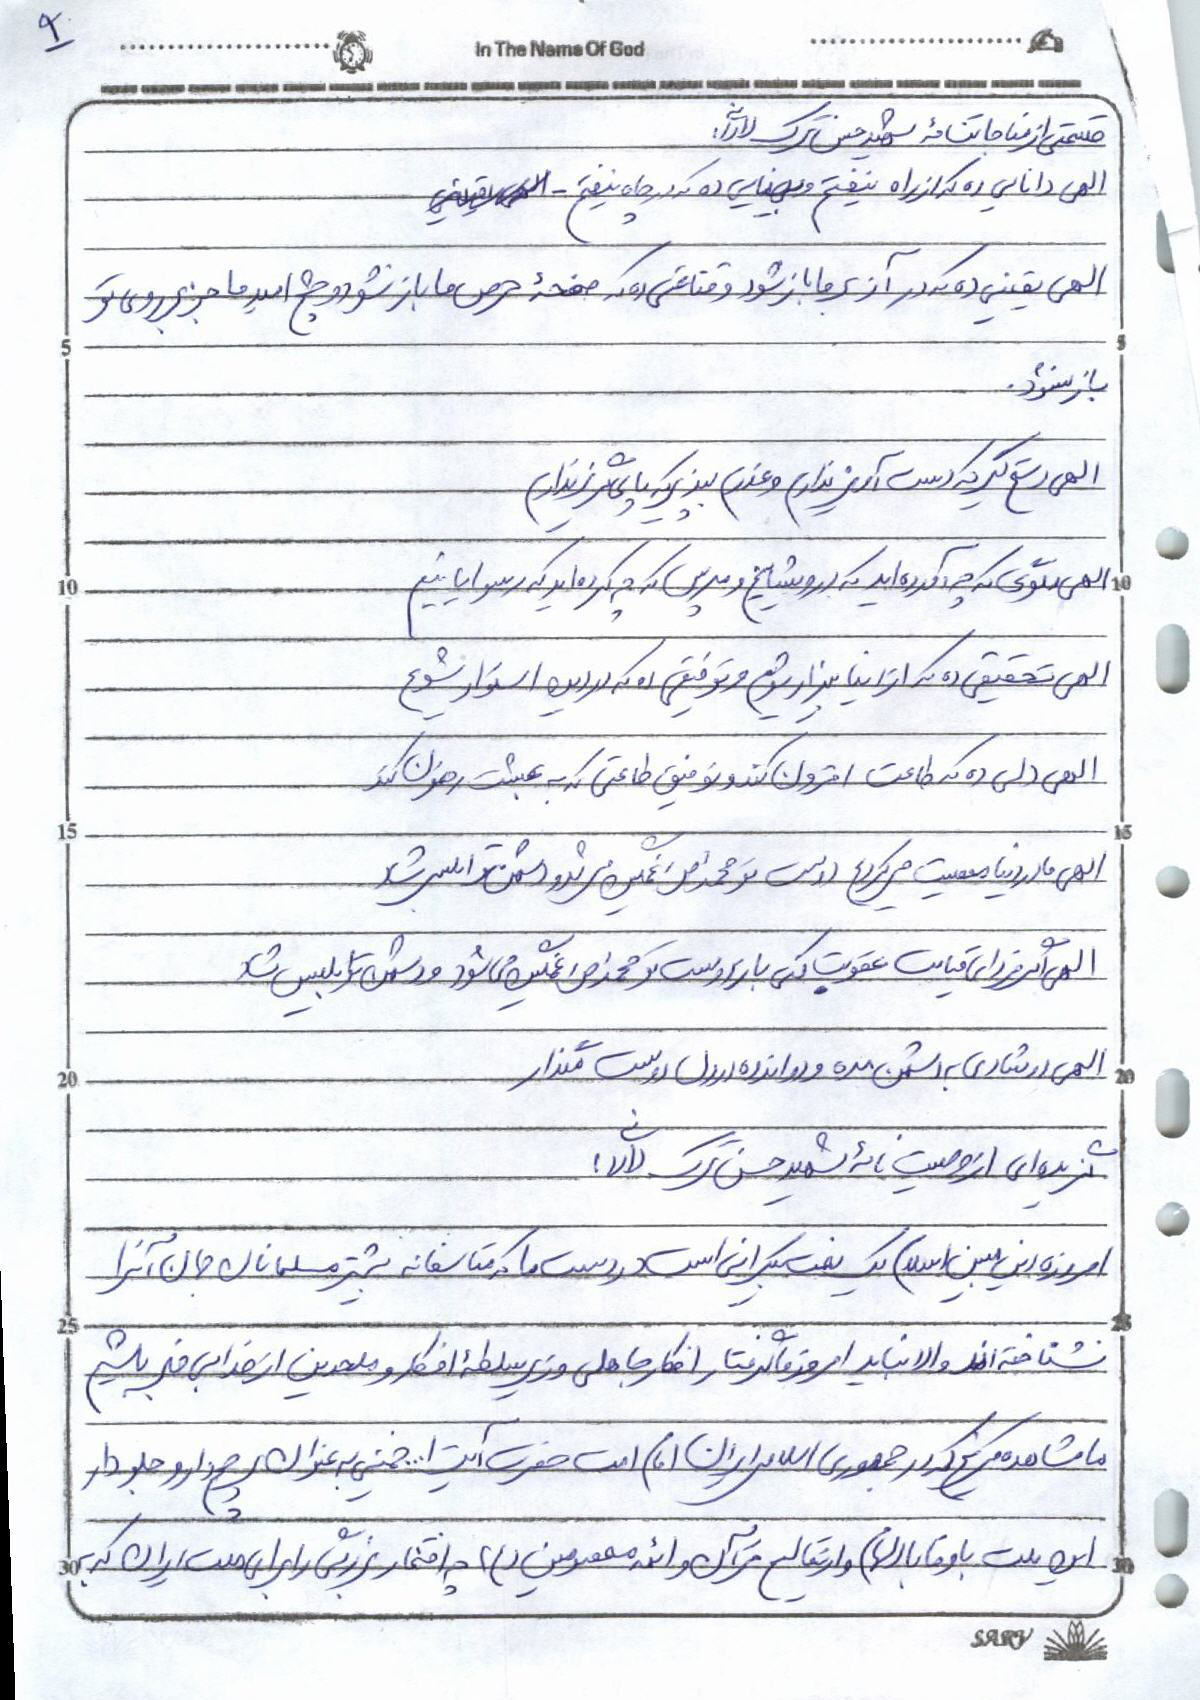 ۹
In The Name Of God
قسمتی از مناجاتنامهٔ شهید حسن ترک لادانی:
الهی دانایی ده که از راه نیفتم و بینایی ده که در چاه نیفتم -
الهی یقینی ده که در آز بر ما باز نشود و قناعتی ده که صفحهٔ حرص ما باز نشود و چشم امید ما جز بر روی تو
باز نشود.
الهی دستم گیر که دست آویز نداریم و عذرم بپذیر که پای گریز نداریم
الهی مگوی که چه آورده‌اید که درویشانیم و مپرس که چه کرده‌اید که رسوایانیم
الهی تحقیقی ده که از دنیا بیزار شویم و توفیقی ده که در دین استوار شویم
الهی دلی ده که طاعت افزون کند و توفیق طاعتی که به بهشت رضوان کند
الهی ما در دنیا معصیت می‌کردیم دوست تو محمد (ص) غمگین می‌شد و دشمن تو ابلیس شاد
الهی اگر فردای قیامت عقوبت کنی باز دوست تو محمد (ص) غمگین می‌شود و دشمن تو ابلیس شاد
الهی دو شادی به دشمن مده و دو اندوه در دل دوست مگذار
گزیده‌ای از وصیت نامهٔ شهید حسن ترک لادانی:
امروزه دین مبین اسلام یک نعمت بیکرانی است در دست ما که متاسفانه بیشتر مسلمانان جهان آنرا
نشناخته‌اند والا نباید امروز ما گرفتار افکار جاهلی و زیر سلطهٔ افکار و ملحدین از خدا بی خبر باشیم
ما مشاهده می‌کنیم که در جمهوری اسلامی ایران امام امت حضرت آیت ا... خمینی به عنوان پرچم‌دار و جلودار
این ملت باوفا با الهام و از تعالیم قرآن و ائمه معصومین (ع) چه افتخار بزرگی را برای ملت ایران که بر
5
10
15
20
25
30
5
10
15
20
25
30
SARV